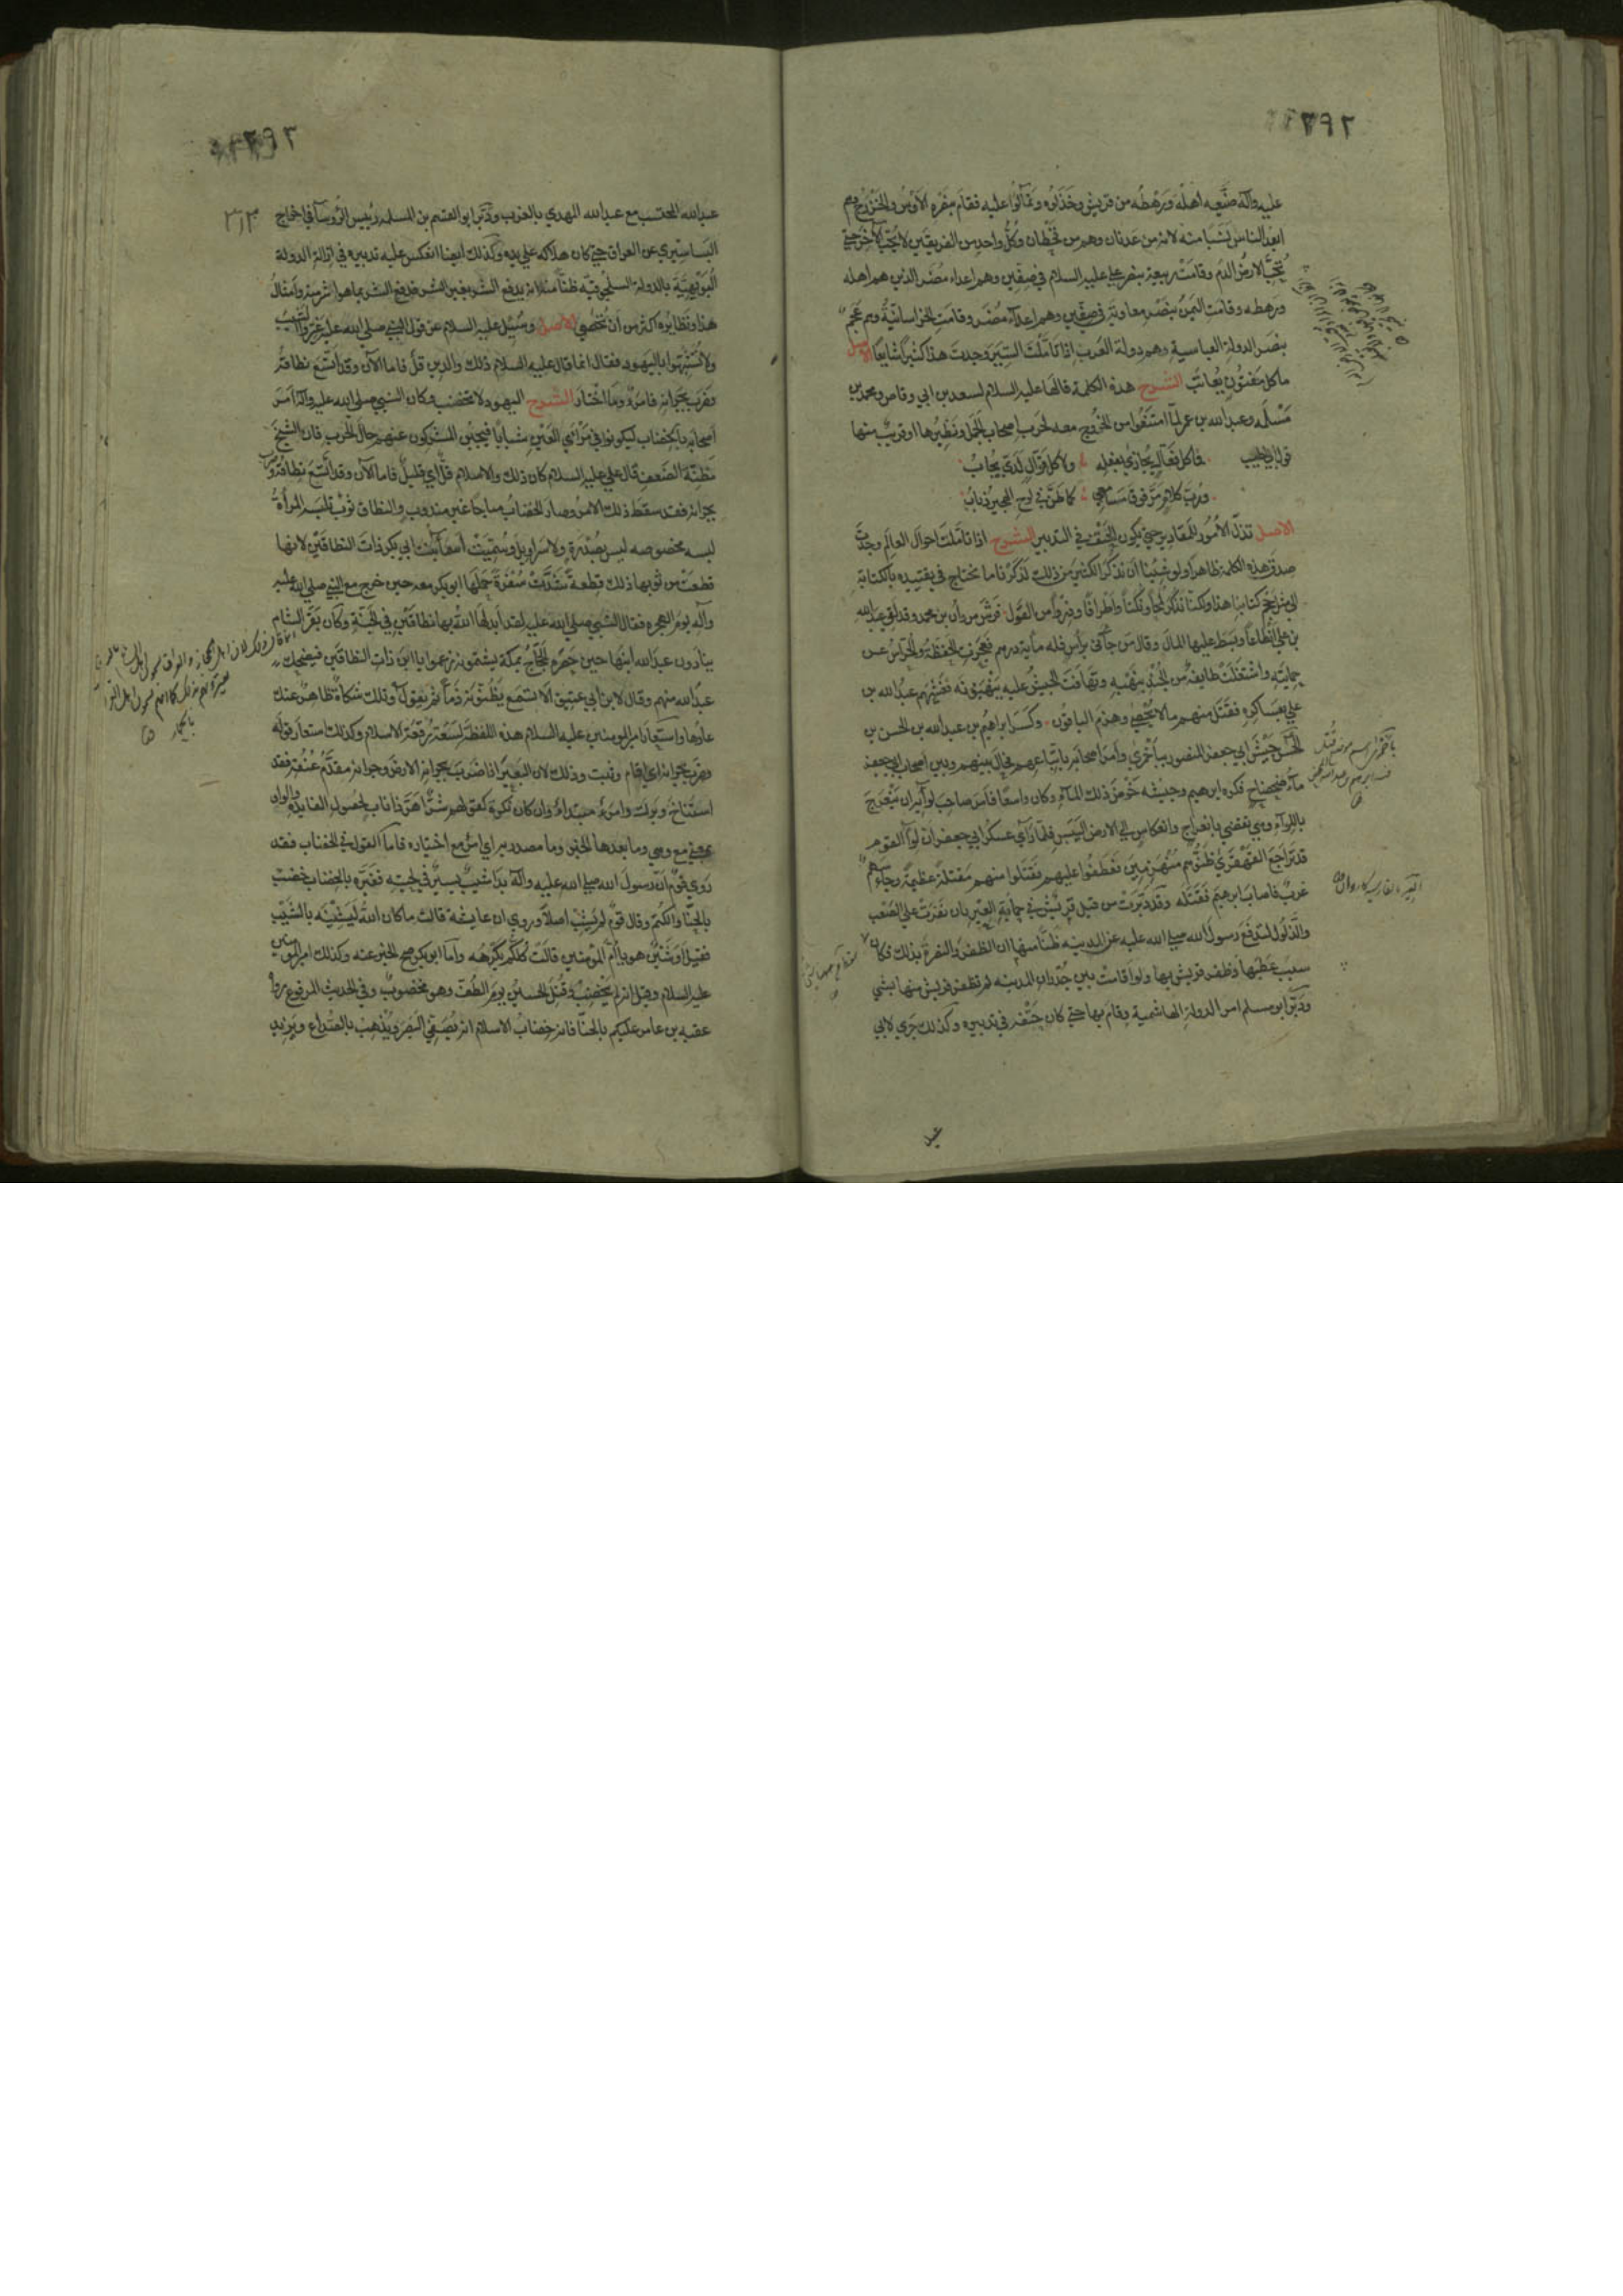 ٢٩٢
عليه وآله ضيّعه اهله ورهطه من قريش وخذلوه وتمالؤا عليه فقام بنصره الاوس والخزرج وهم
ابعد الناس نسبا منه لانه من عدنان وهم من قحطان وكل واحد من الفريقين لا يحب الآخر حتى
تحب الارض الدم وقامت ربيعة بنصر علي عليه السلام في صفين وهم اعداء مضر الذين هم اهله
ورهطه وقامت اليمن بنصر معاوية في صفين وهم اعداء مضر وقامت الخراسانية وهم عجم
بنصر الدولة العباسية وهم دولة العرب اذا تاملت السير وجدت هذا كثيرا شايعا الاصل
ما كل مفتون يعاتب الشرح هذه الكلمة قالها عليه السلام لسعد بن ابي وقاص ومحمد بن
مسلمه وعبد الله بن عمر لما امتنعوا من الخروج معه لحرب اصحاب الجمل ونظيرها او قريب منها
قول ابي الطيب فما كل فعّال يجازى بفعله ولا كل قوّال لديّ يجاب
ورب كلام مرّ فوق مسامعي كما طنّ في لوح الهجير ذباب
الاصل تذلّ الأمور للمقادير حتى يكون الحتف في التدبير الشرح اذا تاملت احوال العالم وجدت
صدق هذه الكلمة ظاهرا ولو شئنا ان نذكر الكثير من ذلك لذكرنا ما نحتاج في تقييده بالكتابة
الى مثل حجم كتابنا هذا ولكنا نذكر لمحا ونكتا واطرافا ودررا من القول فرش مروان بن محمد وقد لقي عبد الله
بن علي انطاعا وبسط عليها المال وقال من جاءني براس فله مأية درهم فعجزت الحفظة والحراس عن
حمايته واشتغلت طايفة من الجند بنهبه وتهافت الجيش عليه ينتهبونه فغشيهم عبد الله بن
علي بعساكره فقتل منهم ما لا يحصى وهزم الباقون وكسر ابراهيم بن عبد الله بن الحسن بن
الحسن جيش ابي جعفر المنصور بباخمرى وامر اصحابه باتباعهم فحال بينهم وبين اصحاب ابي جعفر
ماء ضحضاح فكره ابراهيم وجيشه خوض ذلك الماء وكان واسعا فامر صاحب لوائه ان يتعرج
باللواء وهي تفضي بانعراج وانعكاس الى الارض اليبس فلما رأى عسكر ابي جعفر ان لواء القوم
قد تراجع القهقرى ظنوهم منهزمين فعطفوا عليهم فقتلوا منهم مقتلة عظيمة وجاء سهم
غرب فاصاب ابراهيم فقتله وقد دبرت من قبل قريش في حماية العير بان نفرت على الصعب
والذلول لتدفع رسول الله صلى الله عليه عن المدينه ظنا منها ان الظفر والنصرة بذلك فكان
سبب عطبها وظفر قريش بها ولو اقامت بين جدران المدينه لم تظفر قريش منها بشي
ودبر ابو مسلم امر الدولة الهاشمية وقام بها حتى كان حتفه في تدبيره وكذلك جرى لابي
عبد
٢٩٣
٣١٣
عبد الله المحتسب مع عبد الله المهدي بالغرب ودبر ابو القسم بن المسلمه رئيس الرؤسا في اخراج
البساسيري عن العراق حتى كان هلاكه على يده وكذلك ايضا انعكس عليه تدبيره في ازالة الدولة
البويهية بالدولة السلجوقيه ظنا منه انه يدفع الشر بغير الشر فدفع الشر بما هو اشر منه وامثال
هذا ونظايره اكثر من ان تحصى الاصل وسئل عليه السلام عن قول النبي صلى الله عليه غيروا الشيب
ولا تشبهوا باليهود فقال انما قال عليه السلام ذلك والدين قلّ فاما الآن وقد اتسع نطاقه
وضرب بجرانه فامرؤ وما اختار الشرح اليهود لا تخضب وكان النبي صلى الله عليه وآله امر
اصحابه بالخضاب ليكونوا في مرأى العين شبابا فيجبن المشركون عنهم حال الحرب فان الشيخ
مظنّة الضعف قال علي عليه السلام كان ذلك والاسلام قلّ اي قليل فاما الآن وقد اتسع نطاقه وضرب
بجرانه فقد سقط ذلك الامر وصار الخضاب مباحا غير مندوب والنطاق ثوب تلبسه المرأة
لبسه مخصوصه ليس بصدرة ولا سراويل وسميت اسماء بنت ابي بكر ذات النطاقين لانها
قطعت من ثوبها ذلك قطعة شدت سفرة حملها ابو بكر معه حين خرج مع النبي صلى الله عليه
وآله يوم الهجره فقال النبي صلى الله عليه لقد ابدلها الله بها نطاقين في الجنة وكان نفر الشام
ينادون عبد الله ابنها حين حصره الحجاج بمكة يشتمونه زعموا يا ابن ذات النطاقين فيضحك
عبد الله منهم وقال لابن ابي عتيق الا تسمع يظنونه ذما ثم يقول وتلك شكاة ظاهر عنك
عارها واستعار امير المومنين عليه السلام هذه اللفظة لسعة رقعة الاسلام وكذلك استعار قوله
وضرب بجرانه اي اقام وثبت وذلك لان البعير اذا ضرب بجرانه الارض وجرانه مقدم عنقه فقد
استناخ وبرك وامرؤ مبتداء وان كان نكرة كقولهم شر اهر ذا ناب لحصول الفايده والواو
بمعنى مع وهي وما بعدها الخبر وما مصدريه اي امرؤ مع اختياره فاما القول في الخضاب فقد
روى قوم ان رسول الله صلى الله عليه وآله بدا شيب يسير في لحيته فغيره بالخضاب خضب
بالحنا والكتم وقال قوم لم يشب اصلا وروي ان عايشة قالت ما كان الله ليشينه بالشيب
فقيل اوشين هو يا ام المؤمنين قالت كلكم يكرهه واما ابو بكر فصح الخبر عنه وكذلك امير المومنين
عليه السلام وقيل انه لم يخضب وقتل الحسين يوم الطف وهو مخضوب وفي الحديث المرفوع رواه
عقبه بن عامر عليكم بالحنا فانه خضاب الاسلام انه يصفي البصر ويذهب بالصداع ويزيد